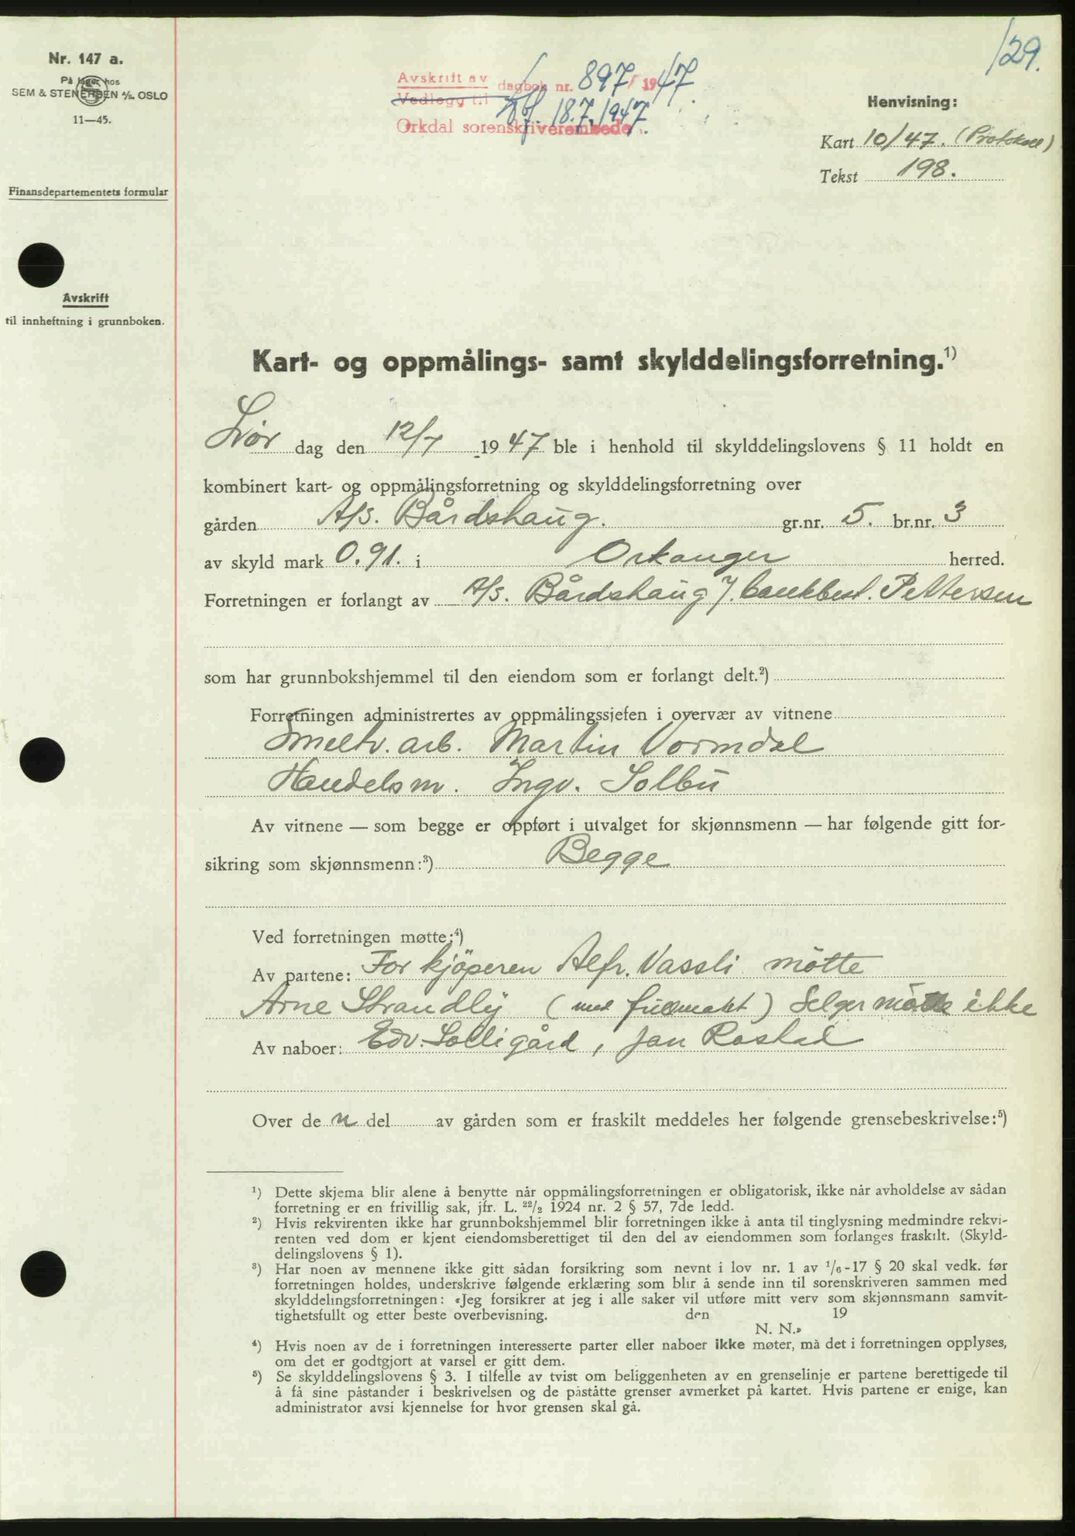 129.
Nr. 147 a.
På lager hos
SEM & STENERSEN A/S. OSLO
11—45.
Finansdepartementets formular
Avskrift
til innheftning i grunnboken.
Avskrift av dagbok nr. 897 / 1947
Vedlegg til 18.7.1947
Orkdal sorenskriverembede.
Henvisning:
Kart 10/47. (Protokoll)
Tekst 198.
Kart- og oppmålings- samt skylddelingsforretning.¹)
Lør dag den 12/7 1947 ble i henhold til skylddelingslovens § 11 holdt en
kombinert kart- og oppmålingsforretning og skylddelingsforretning over
gården A/S. Bårdshaug. gr.nr. 5. br.nr. 3
av skyld mark 0.91. i Orkanger herred.
Forretningen er forlangt av A/S. Bårdshaug Pettersen
som har grunnbokshjemmel til den eiendom som er forlangt delt.²)
Forretningen administrertes av oppmålingssjefen i overvær av vitnene
Smeltv. arb. Martin Vormdal
Handelsm. Ingv. Solbu
Av vitnene — som begge er oppført i utvalget for skjønnsmenn — har følgende gitt for-
sikring som skjønnsmenn:³) Begge
Ved forretningen møtte:⁴)
Av partene: For kjöperen Alfr. Vassli mötte
Arne Strandly (med fullmakt) Selger mötte ikke
Av naboer: Edv. Solligård, Jan Rostad
Over de n del av gården som er fraskilt meddeles her følgende grensebeskrivelse:⁵)
¹) Dette skjema blir alene å benytte når oppmålingsforretningen er obligatorisk, ikke når avholdelse av sådan
forretning er en frivillig sak, jfr. L. 22/2 1924 nr. 2 § 57, 7de ledd.
²) Hvis rekvirenten ikke har grunnbokshjemmel blir forretningen ikke å anta til tinglysning medmindre rekvi-
renten ved dom er kjent eiendomsberettiget til den del av eiendommen som forlanges fraskilt. (Skyld-
delingslovens § 1).
³) Har noen av mennene ikke gitt sådan forsikring som nevnt i lov nr. 1 av 1/6-17 § 20 skal vedk. før
forretningen holdes, underskrive følgende erklæring som blir å sende inn til sorenskriveren sammen med
skylddelingsforretningen: «Jeg forsikrer at jeg i alle saker vil utføre mitt verv som skjønnsmann samvit-
tighetsfullt og etter beste overbevisning. den 19
N. N.»
⁴) Hvis noen av de i forretningen interesserte parter eller naboer ikke møter, må det i forretningen opplyses,
om det er godtgjort at varsel er gitt dem.
⁵) Se skylddelingslovens § 3. I tilfelle av tvist om beliggenheten av en grenselinje er partene berettigede til
å få sine påstander i beskrivelsen og de påståtte grenser avmerket på kartet. Hvis partene er enige, kan
administrator avsi kjennelse for hvor grensen skal gå.